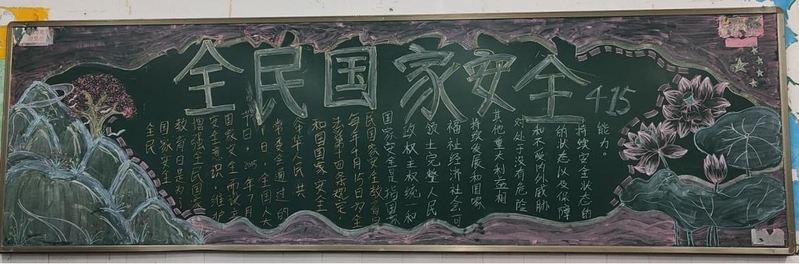 全民国家安全 4.15
全民
国家安全
教育日是为了
增强全民国家
安全意识,维护
国家安全而设立的
节日,2015年7月
1日,全国人大
常委会通过的
中华人民共
和国国家安全
法第十四条规定
每年4月15日为全
民国家安全教育日
国家安全是指国家
政权主权统一和
领土完整人民
福祉经济社会可
持续发展和国家
其他重大利益相
对处于没有危险
和不受内外威胁
的状态以及保障
持续安全状态的
能力。